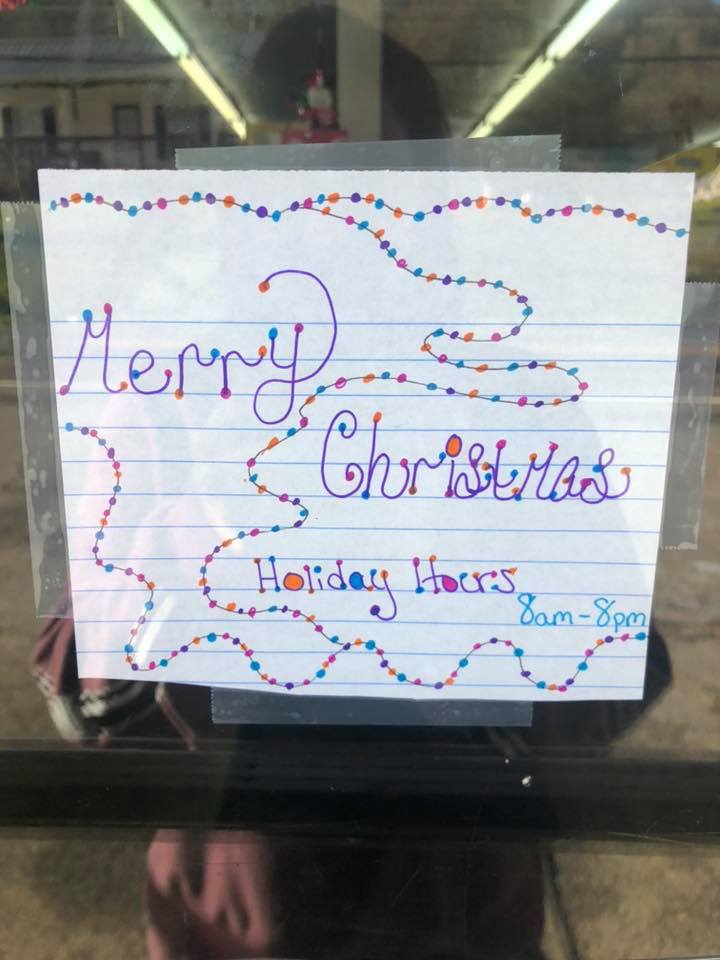 Merry
Christmas
Holiday Hours
8am-8pm